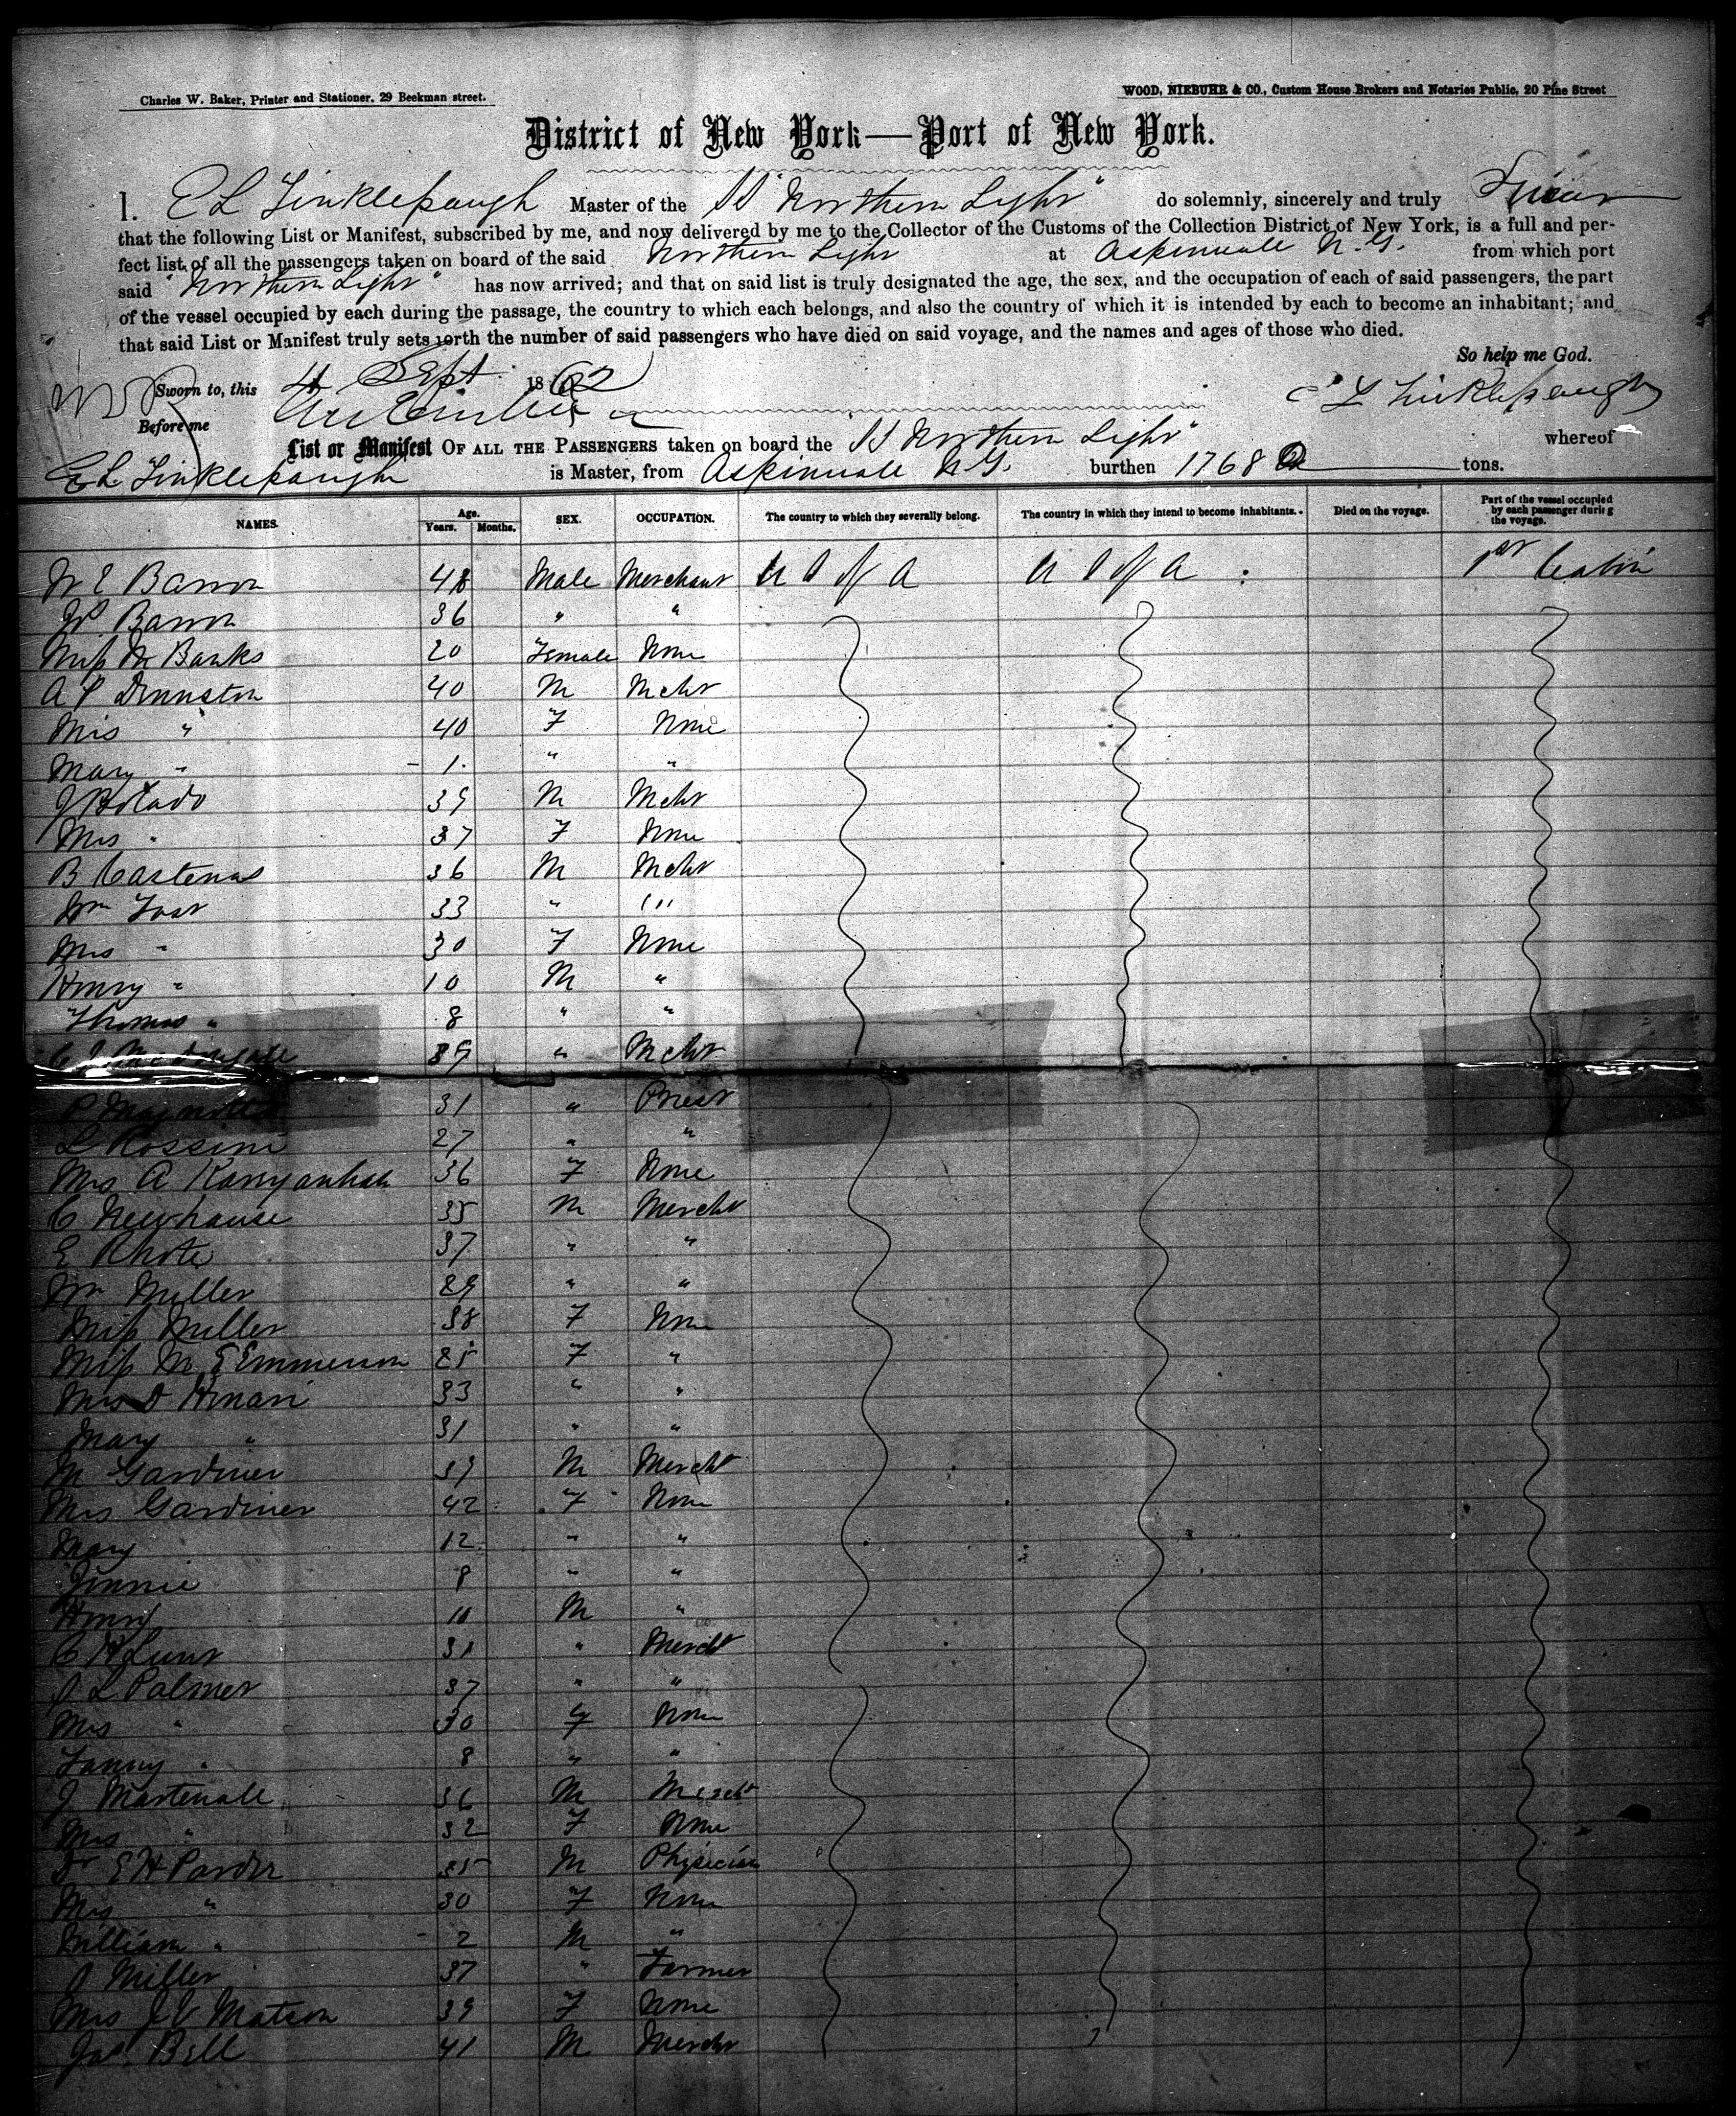 Charles W. Baker, Printer and Stationer, 29 Beekman street.
WOOD, NIEBUHR & CO., Custom House Brokers and Notaries Public, 20 Pine Street
District of New York—Port of New York.
I, E L Tinklepaugh Master of the SS "Northern Light" do solemnly, sincerely and truly Swear
that the following List or Manifest, subscribed by me, and now delivered by me to the Collector of the Customs of the Collection District of New York, is a full and per-
fect list of all the passengers taken on board of the said Northern Light at Aspinwall N.G. from which port
said "Northern Light" has now arrived; and that on said list is truly designated the age, the sex, and the occupation of each of said passengers, the part
of the vessel occupied by each during the passage, the country to which each belongs, and also the country of which it is intended by each to become an inhabitant; and
that said List or Manifest truly sets forth the number of said passengers who have died on said voyage, and the names and ages of those who died.
So help me God.
Sworn to, this 4 Sept 1862 E L Tinklepaugh
Before me
List or Manifest OF ALL THE PASSENGERS taken on board the SS Northern Light" whereof
E L Tinklepaugh is Master, from Aspinwall N.G. burthen 1768 tons.
NAMES. Age. Years. Months. SEX. OCCUPATION. The country to which they severally belong. The country in which they intend to become inhabitants. Died on the voyage. Part of the vessel occupied by each passenger during the voyage.
W E Barron 48 Male Merchant U S of A U S of A 1st Cabin
Barron 36 " "
Miss M Banks 20 Female None
A P Dennston 40 M Mcht
Mrs " 40 F None
Mary " 1 " "
39 M Mcht
Mrs " 37 F None
B 36 M Mcht
Wm 33 " " "
Mrs " 30 F None
Henry " 10 M "
Thomas " 8 " "
39 " Mcht
P 31 " Priest
L Rossini 27 " "
Mrs A 36 F None
C Newhause 35 M Mercht
E Rhote 37 " "
Wm Miller 29 " "
Miss Miller 38 F None
Miss M E Emmerson 25 F "
Mrs D 33 " "
Mary " 31 " "
M Gardiner 39 M Mercht
Mrs Gardiner 42 F None
Mary 12 " "
Jinnie 8 " "
Henry 10 M "
C H Lunt 31 " Mercht
S L Palmer 37 " "
Mrs " 30 F None
Fanny " 8 " "
J Martenale 36 M Mercht
Mrs " 32 F None
Dr E H Pardee 35 M Physician
Mrs " 30 F None
William " 2 M "
S Miller 37 " Farmer
Mrs J V Matson 39 F None
Jas. Bell 41 M Mercht